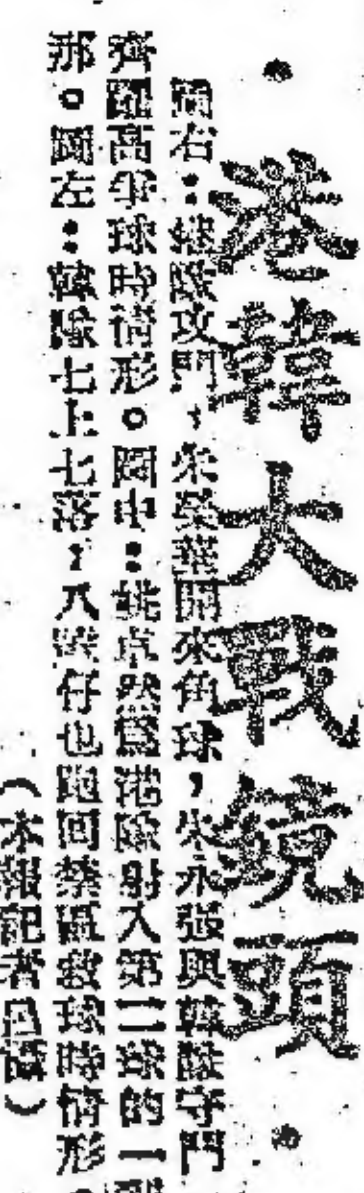 ·港韓大戰鏡頭·
圖右：港隊攻門，朱榮華開來角球，朱永強與韓隊守門
齊躍高爭球時情形。圖中：姚卓然為港隊射入第二球的一刹
那。圖左：韓隊七上七落，八號仔也跑回禁區救球時情形。
（本報記者昌攝）